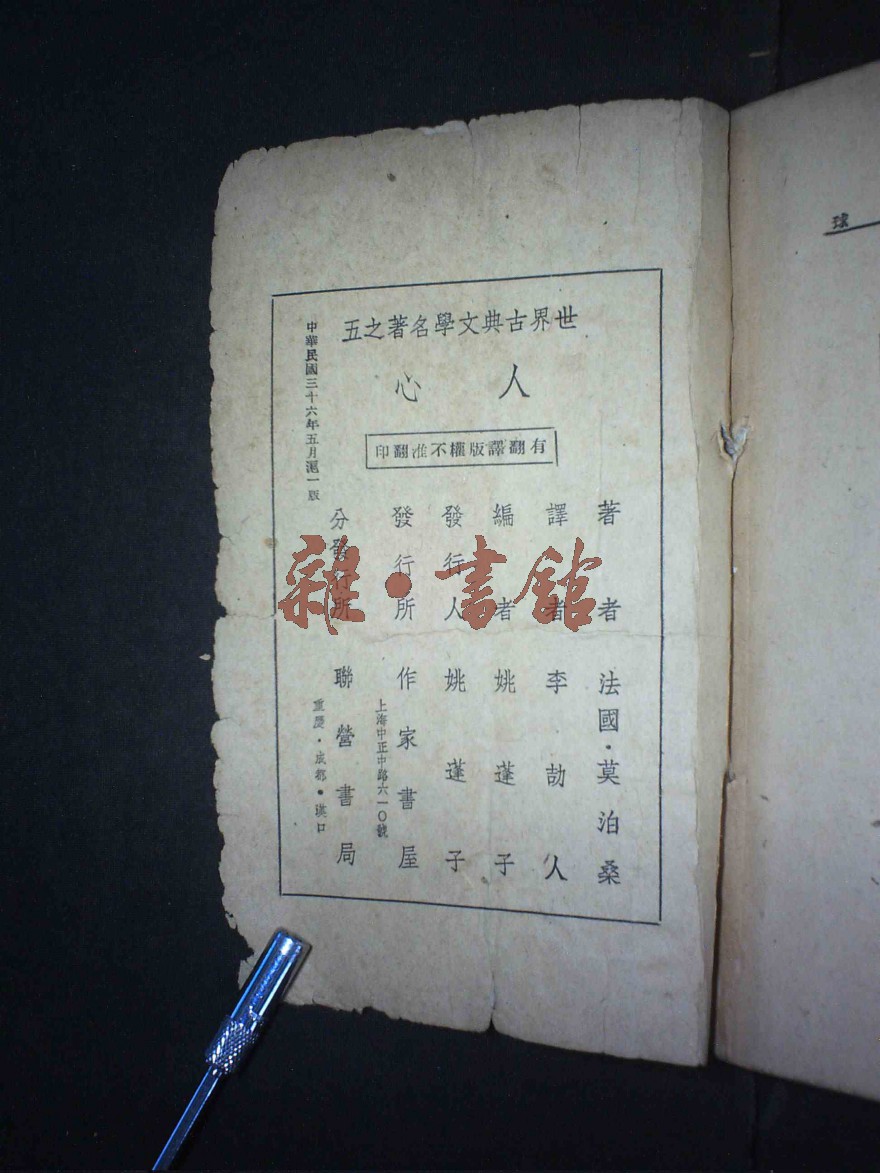 世界古典文學名著之五
人心
有翻譯版權不准翻印
著者 法國·莫泊桑
譯者 李劼人
編者 姚蓬子
發行人 姚蓬子
發行所 作家書屋
上海中正中路六一〇號
分發行所 聯營書局
重慶·成都·漢口
中華民國三十六年五月滬一版
雜·書館